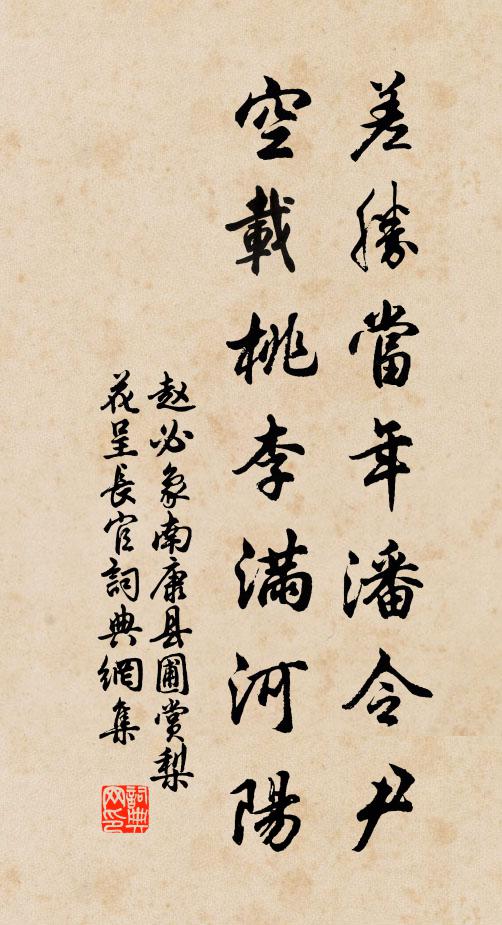 差勝當年潘令尹
空載桃李滿河陽
赵必象南康县圃赏梨
花呈長官詞典網集
詞典
网印